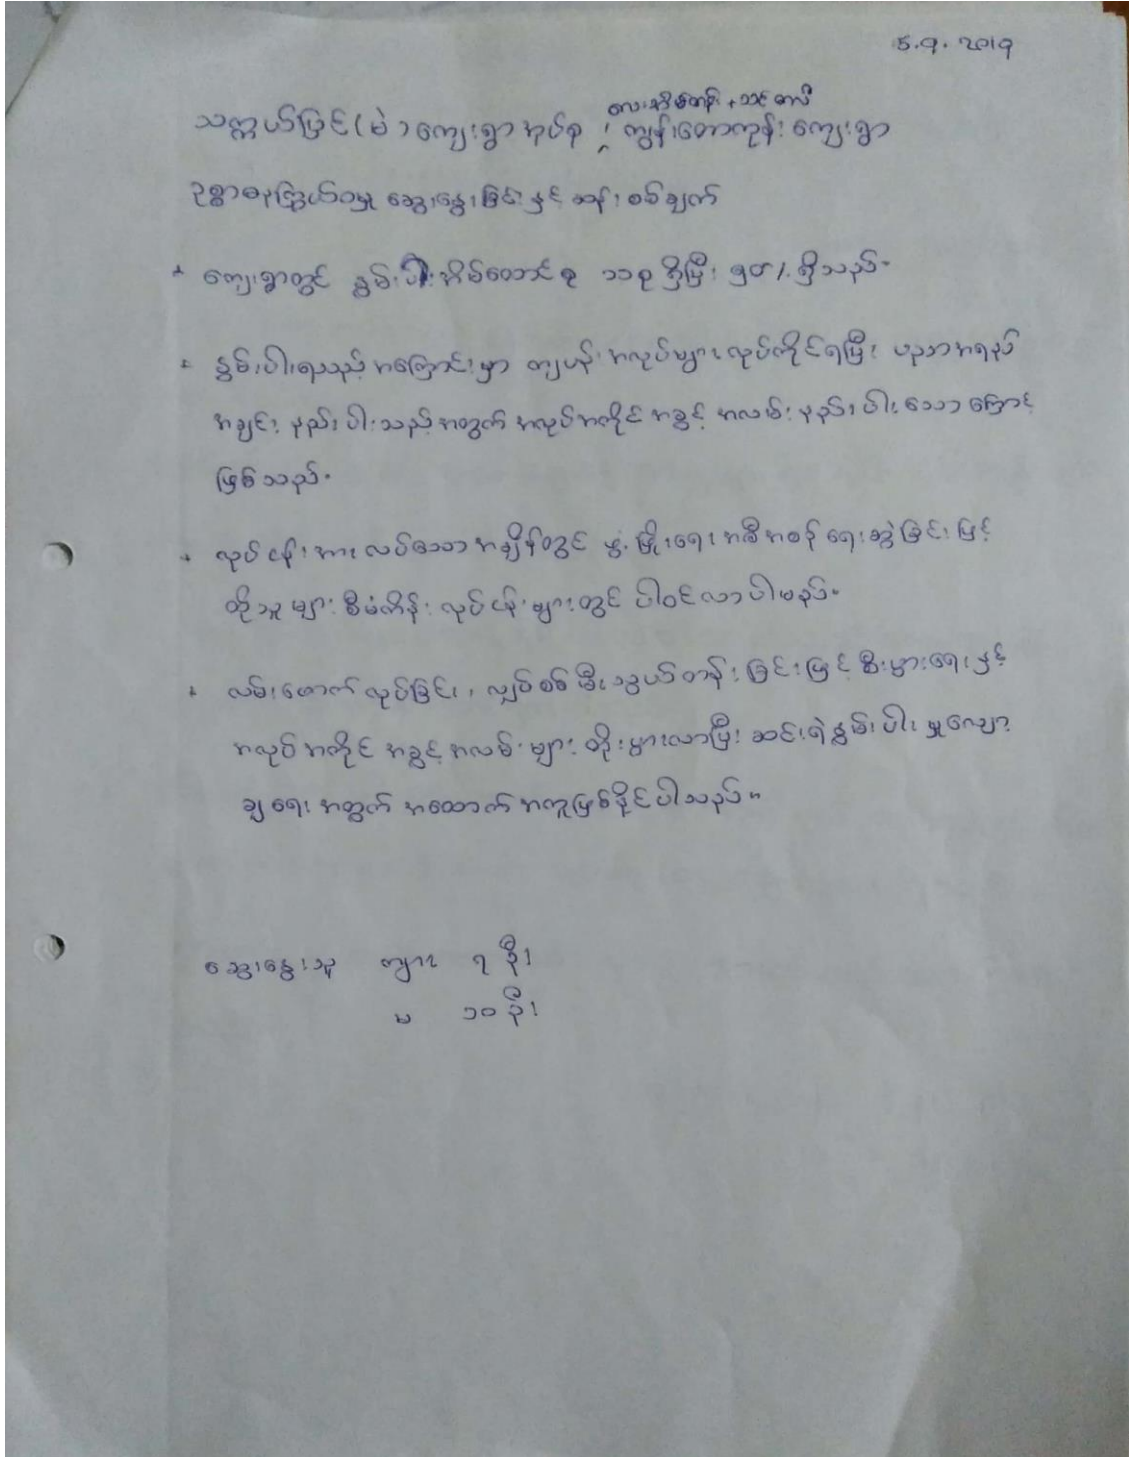 5.9.2019
လေးအိမ်တန်း + သင်
သက္ကယ်ပြင်(မဲ) ကျေးရွာအုပ်စု၊ ကျွန်းတောကုန်း ကျေးရွာ
ဥစ္စာဓနကြွယ်ဝမှု ဆွေးနွေးခြင်းနှင့် ဆန်းစစ်ချက်
* ကျေးရွာတွင် နွမ်းပါးအိမ်ထောင်စု ၁၁စု ရှိပြီး ရှိသည်။
* နွမ်းပါးရသည့် အကြောင်းမှာ ကျပန်း အလုပ်များ လုပ်ကိုင်ရပြီး ပညာအရည်
အချင်း နည်းပါးသည့်အတွက် အလုပ်အကိုင် အခွင့် အလမ်း နည်းပါးသောကြောင့်
ဖြစ်သည်။
* လုပ်ငန်းအားလပ်သောအချိန်တွင် ဖွံ့ဖြိုးရေး အစီအစဉ် ရေးဆွဲခြင်းဖြင့်
ထိုသူများ စီမံကိန်း လုပ်ငန်းများတွင် ပါဝင်လာပါမည်။
* လမ်းဖောက်လုပ်ခြင်း၊ လျှပ်စစ်မီးသွယ်တန်းခြင်းဖြင့် စီးပွားရေးနှင့်
အလုပ်အကိုင် အခွင့်အလမ်းများ တိုးပွားလာပြီး ဆင်းရဲနွမ်းပါးမှုလျော့
ချရေး အတွက် အထောက်အကူဖြစ်နိုင်ပါသည်။
ဆွေးနွေးသူ ကျား ၇ ဦး
မ ၁၀ ဦး